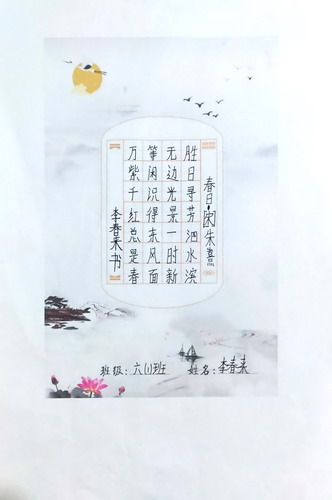 春日·[宋]朱熹
胜日寻芳泗水滨
无边光景一时新
等闲识得东风面
万紫千红总是春
李春来书
班级:六(1)班 姓名:李春来